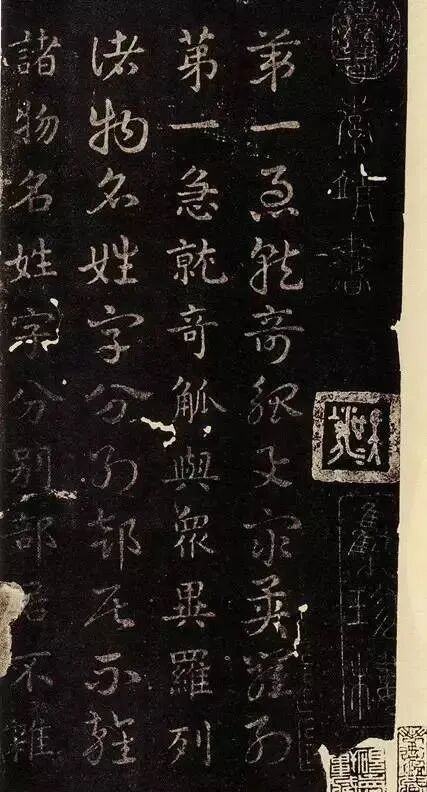 索靖書
第一急就奇觚與衆異羅列
第一急就奇觚與衆異羅列
諸物名姓字分别部居不雜
諸物名姓字分别部居不雜